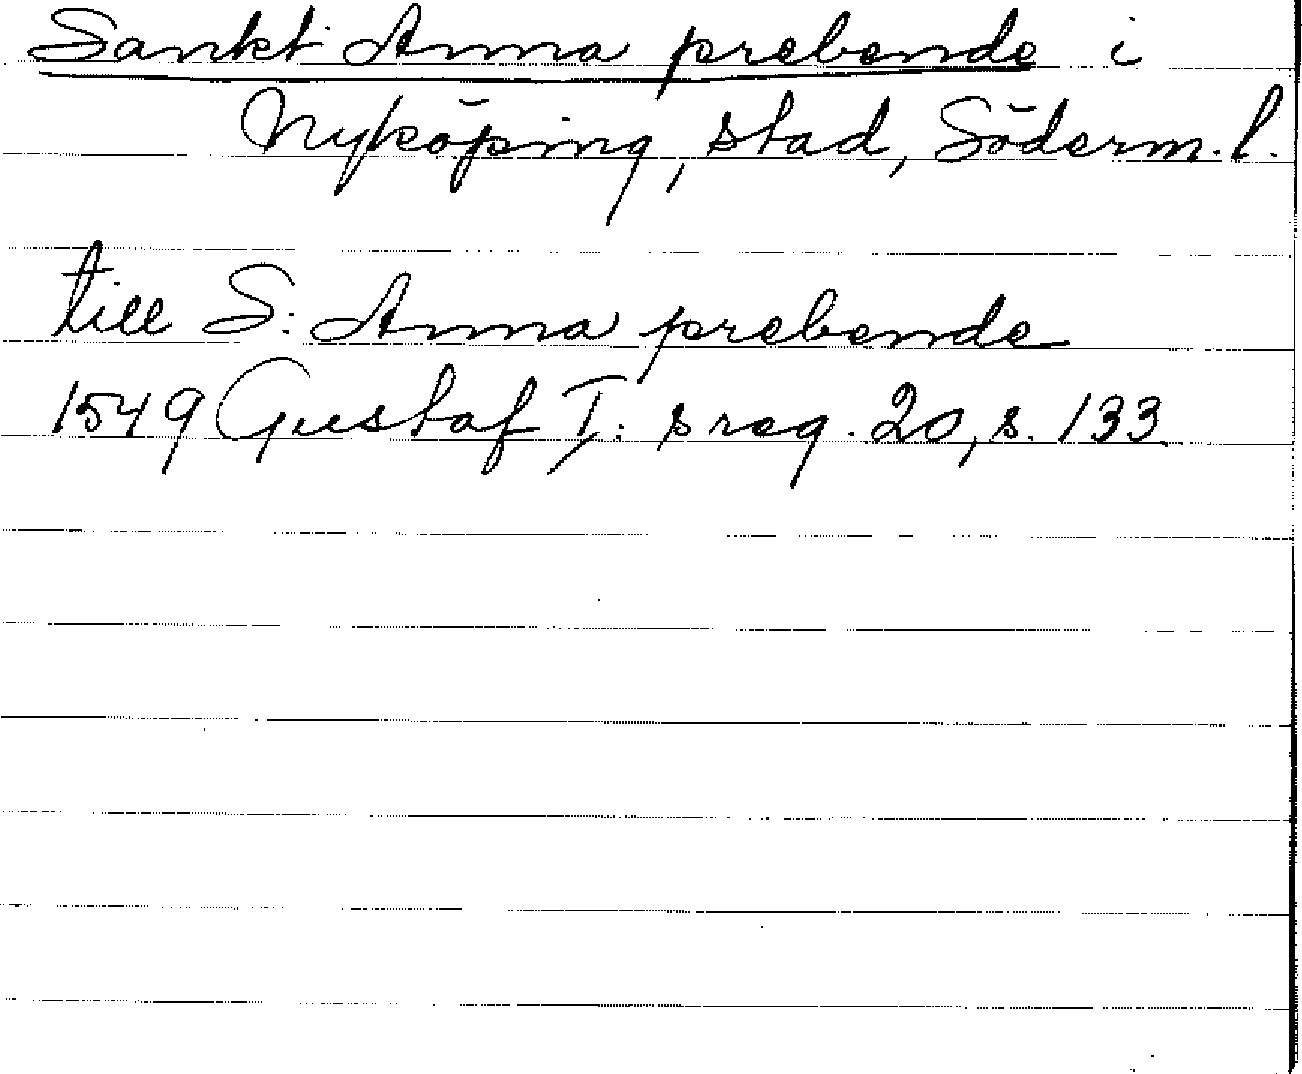 Sankt Anna prebende i
Nyköping, stad, Söderm. l.
till S: Anna prebende
1549 Gustaf I: s reg. 20, s. 133